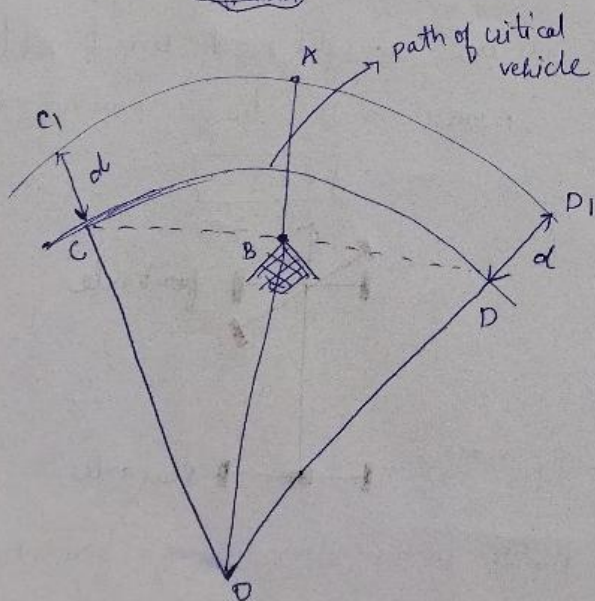 path of critical
vehicle
A
C1
d
D1
C
B
d
D
O